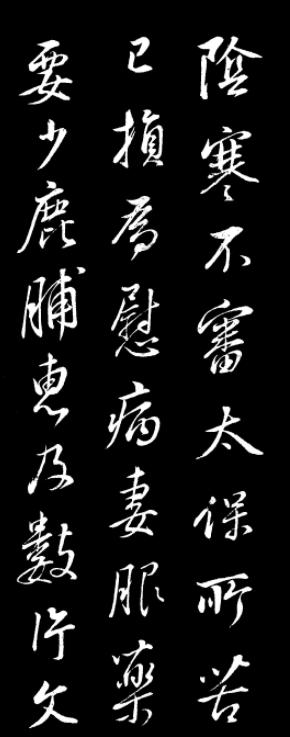 陰寒不審太保所苦
已損為慰病妻服藥
要少鹿脯惠及數片文